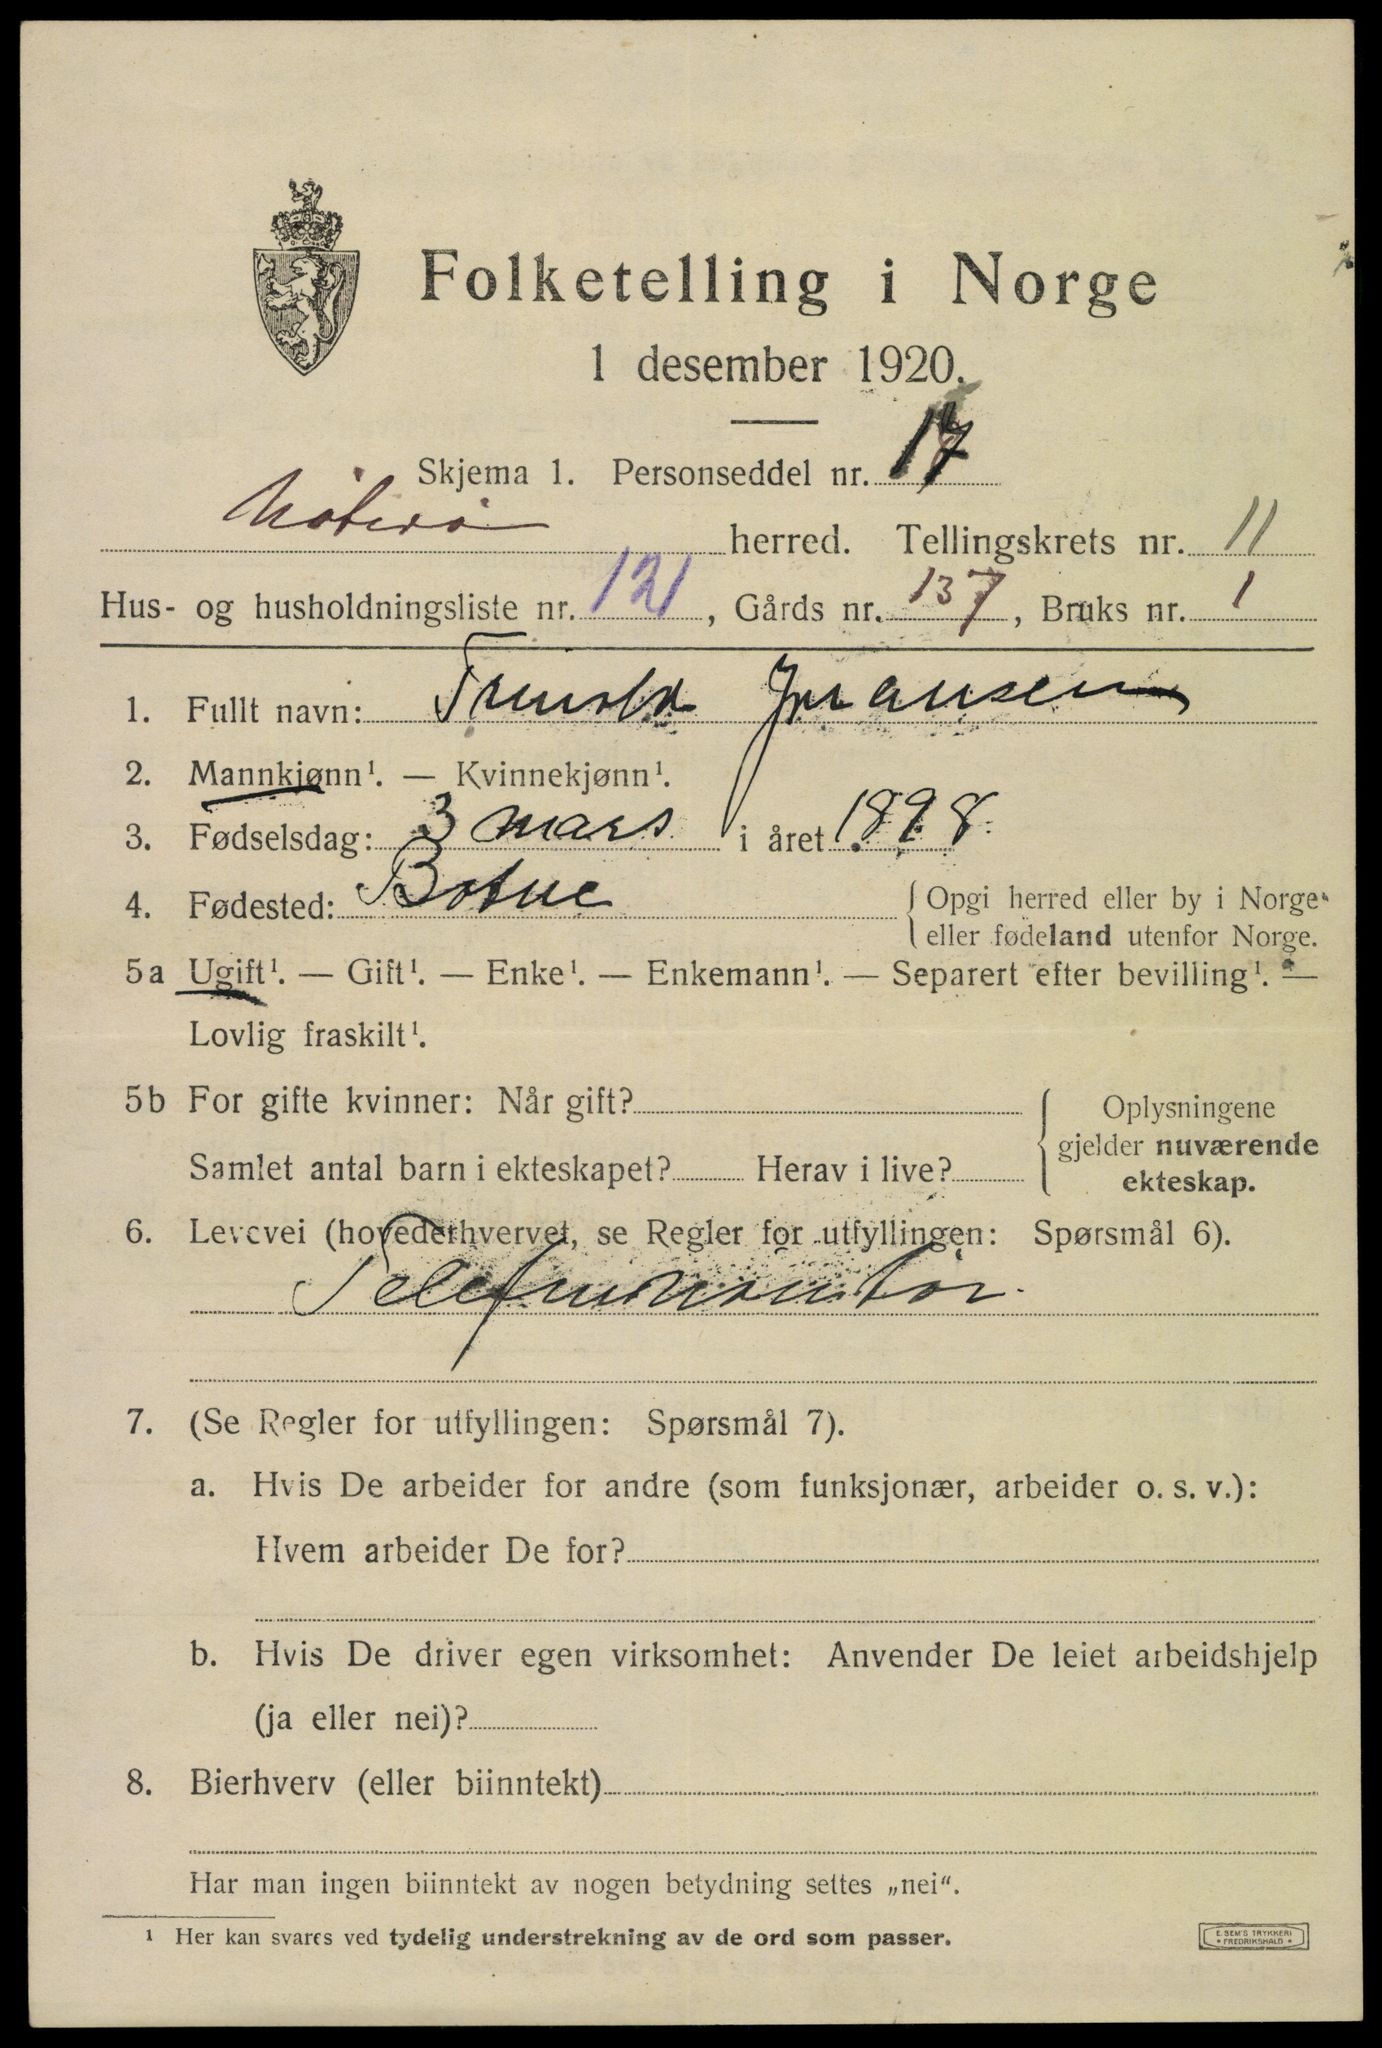 Folketelling i Norge
1 desember 1920.
Skjema 1. Personseddel nr. 17
Nøterø herred. Tellingskrets nr. 11
Hus- og husholdningsliste nr. 121, Gårds nr. 137, Bruks nr. 1
1. Fullt navn: Johansen
2. Mannkjønn¹. — Kvinnekjønn¹.
3. Fødselsdag: 3 mars i året 1898.
4. Fødested: Botne
{ Opgi herred eller by i Norge
eller fødeland utenfor Norge.
5a Ugift¹. — Gift¹. — Enke¹. — Enkemann¹. — Separert efter bevilling¹. —
Lovlig fraskilt¹.
5b For gifte kvinner: Når gift?
Samlet antal barn i ekteskapet? Herav i live?
{ Oplysningene
gjelder nuværende
ekteskap.
6. Levevei (hovederhvervet, se Regler for utfyllingen: Spørsmål 6).
Telefonmontør.
7. (Se Regler for utfyllingen: Spørsmål 7).
a. Hvis De arbeider for andre (som funksjonær, arbeider o. s. v.):
Hvem arbeider De for?
b. Hvis De driver egen virksomhet: Anvender De leiet arbeidshjelp
(ja eller nei)?
8. Bierhverv (eller biinntekt)
Har man ingen biinntekt av nogen betydning settes „nei“.
¹ Her kan svares ved tydelig understrekning av de ord som passer.
E. SEM'S TRYKKERI
* FREDRIKSHALD *